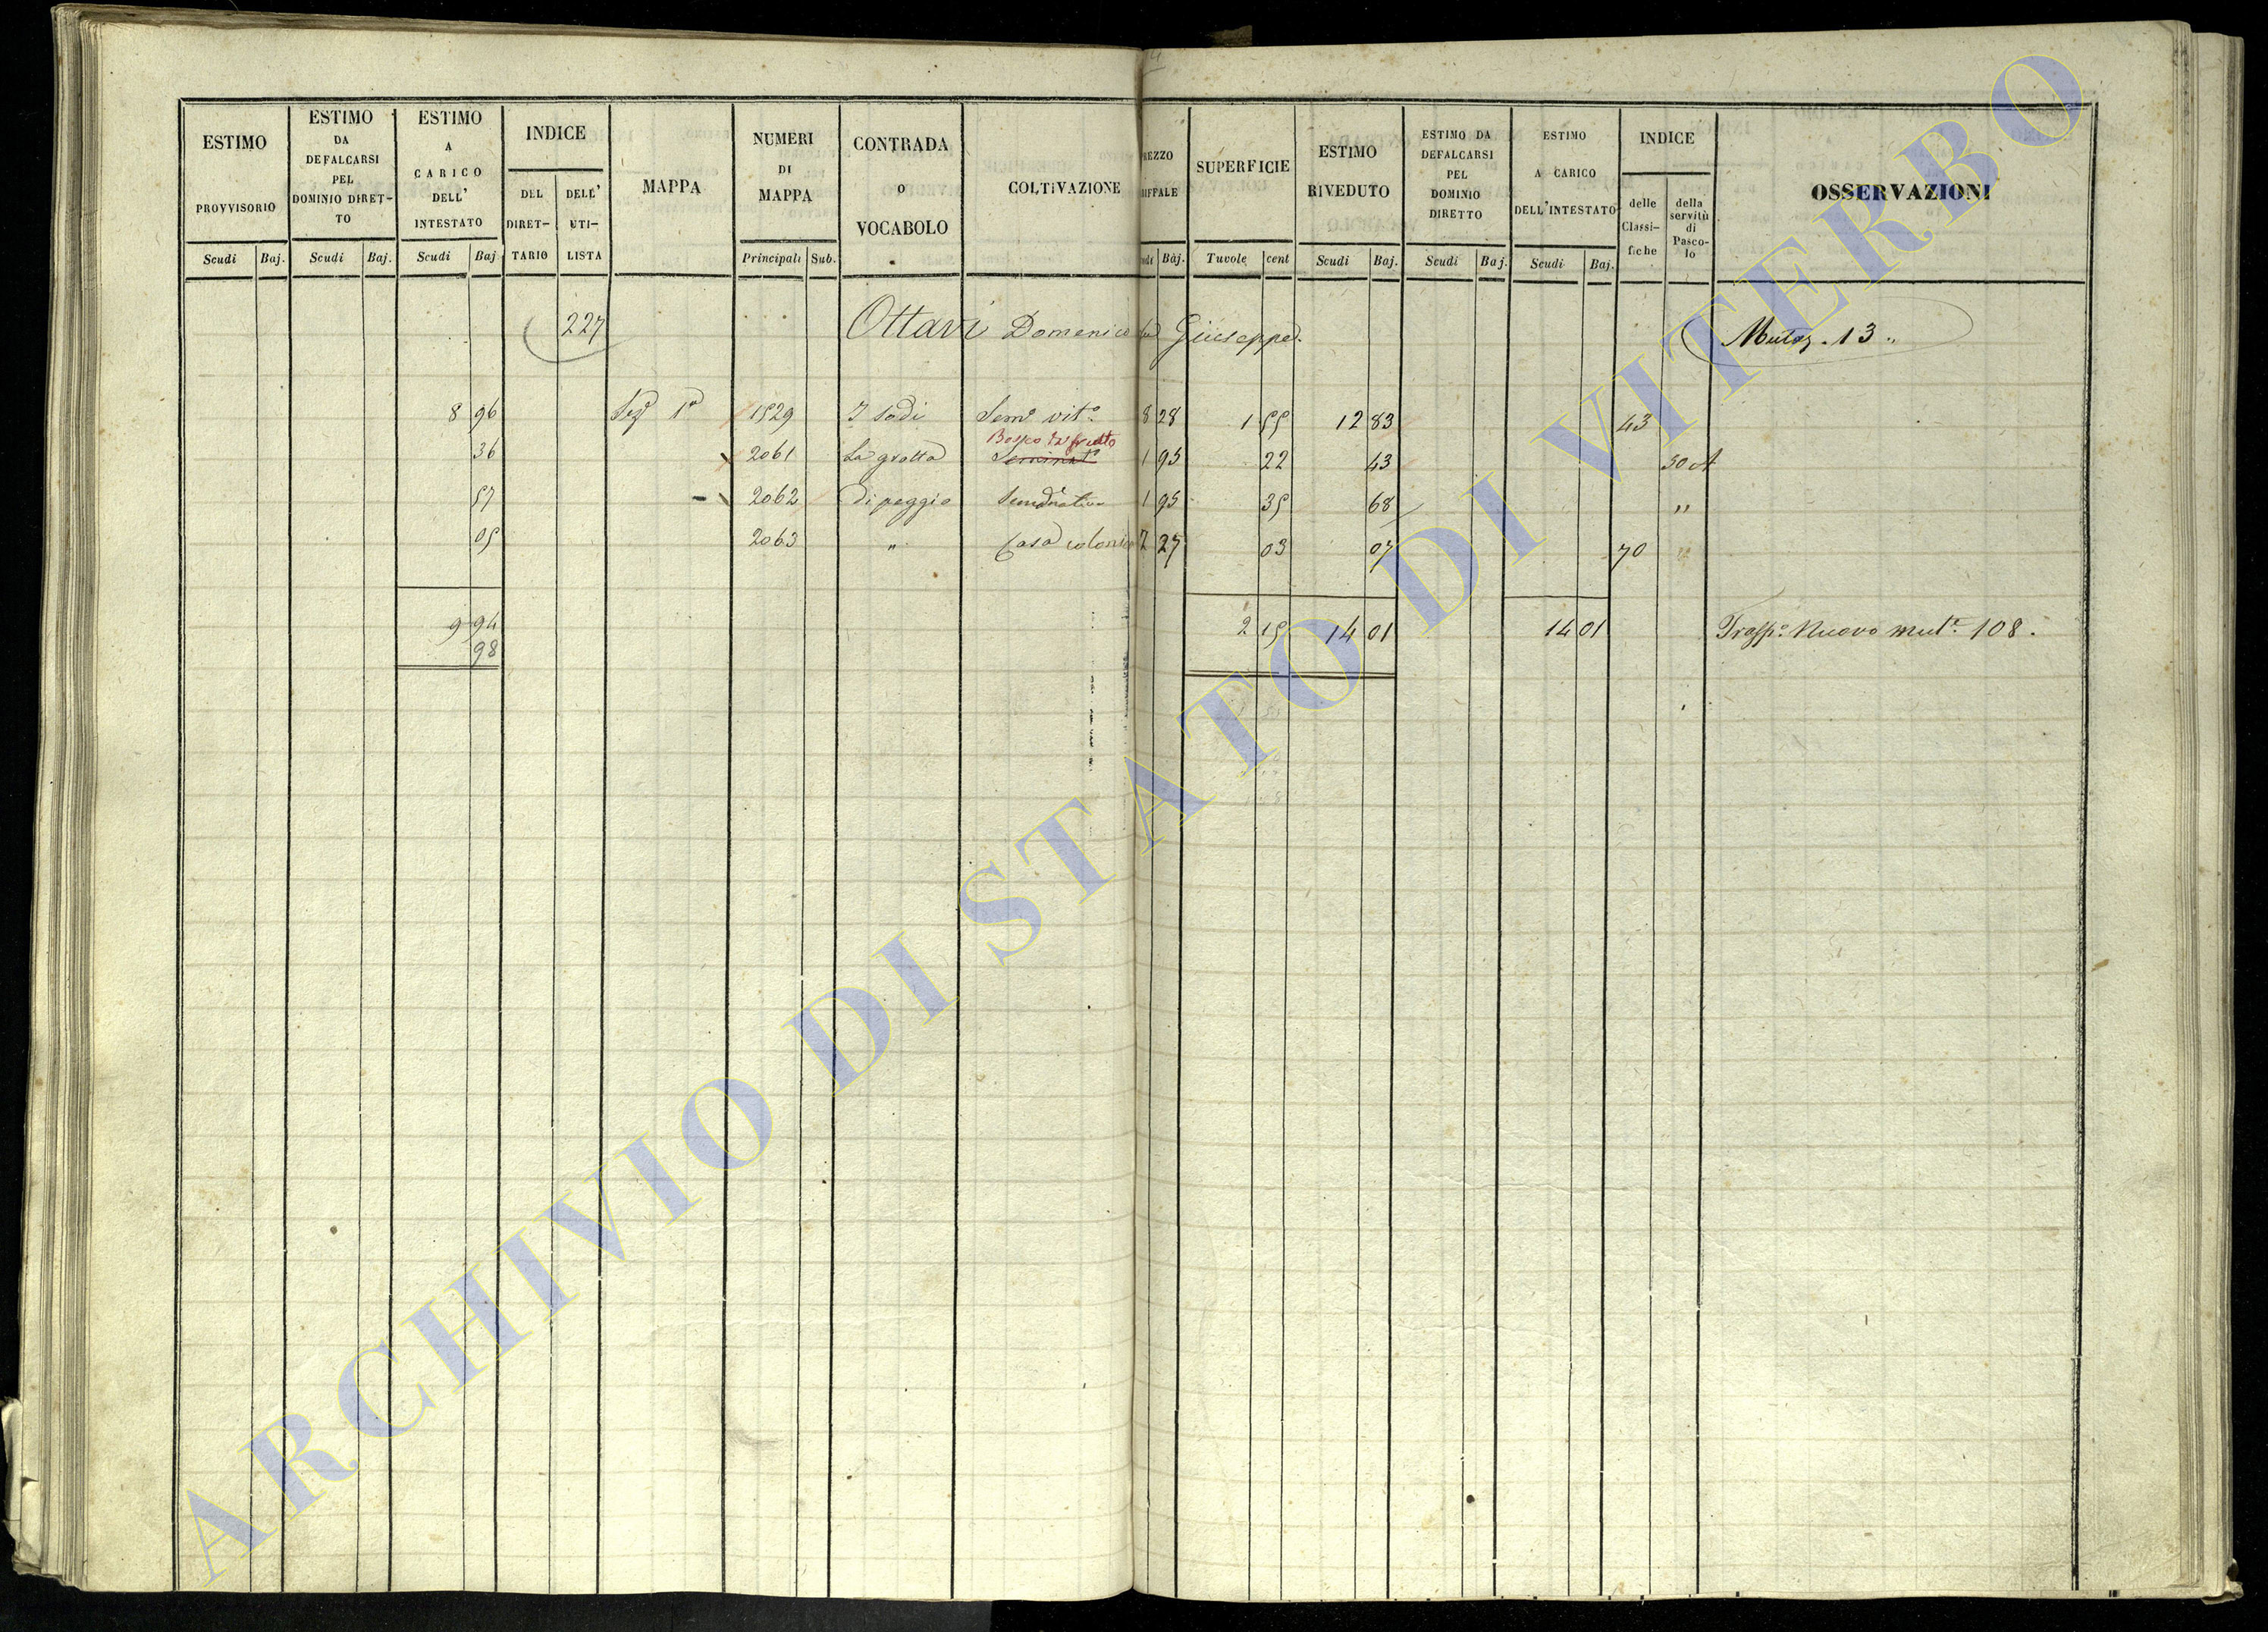 ESTIMO PROVVISORIO
ESTIMO DA DEFALCARSI PEL DOMINIO DIRETTO
ESTIMO A CARICO DELL' INTESTATO
INDICE
DEL DIRETTARIO
DELL' UTILISTA
MAPPA
NUMERI DI MAPPA
CONTRADA O VOCABOLO
COLTIVAZIONE
REZZO
RIFFALE
SUPERFICIE
ESTIMO RIVEDUTO
ESTIMO DA DEFALCARSI PEL DOMINIO DIRETTO
ESTIMO A CARICO DELL'INTESTATO
INDICE
delle Classifiche
della servitù di Pascolo
OSSERVAZIONI
Scudi Baj. Scudi Baj. Scudi Baj Principali Sub. Baj. Tavole cent Scudi Baj. Scudi Baj. Scudi Baj.
227 Ottavi Domenico Giuseppe. Mutaz. 13
8 96 Seze 1a 1529 I Sodi Semo vito 8 28 1 55 12 83 43
Bosco da frutto
36 2061 La grotta Seminat 1 95 22 43 30 A
57 2062 di peggio Seminativo 1 95 35 68 "
05 2063 " Casa colonica 2 27 03 07 70
9 94 2 15 14 01 14 01 Trasp. Nuovo mut. 108.
98
ARCHIVIO DI STATO DI VITERBO